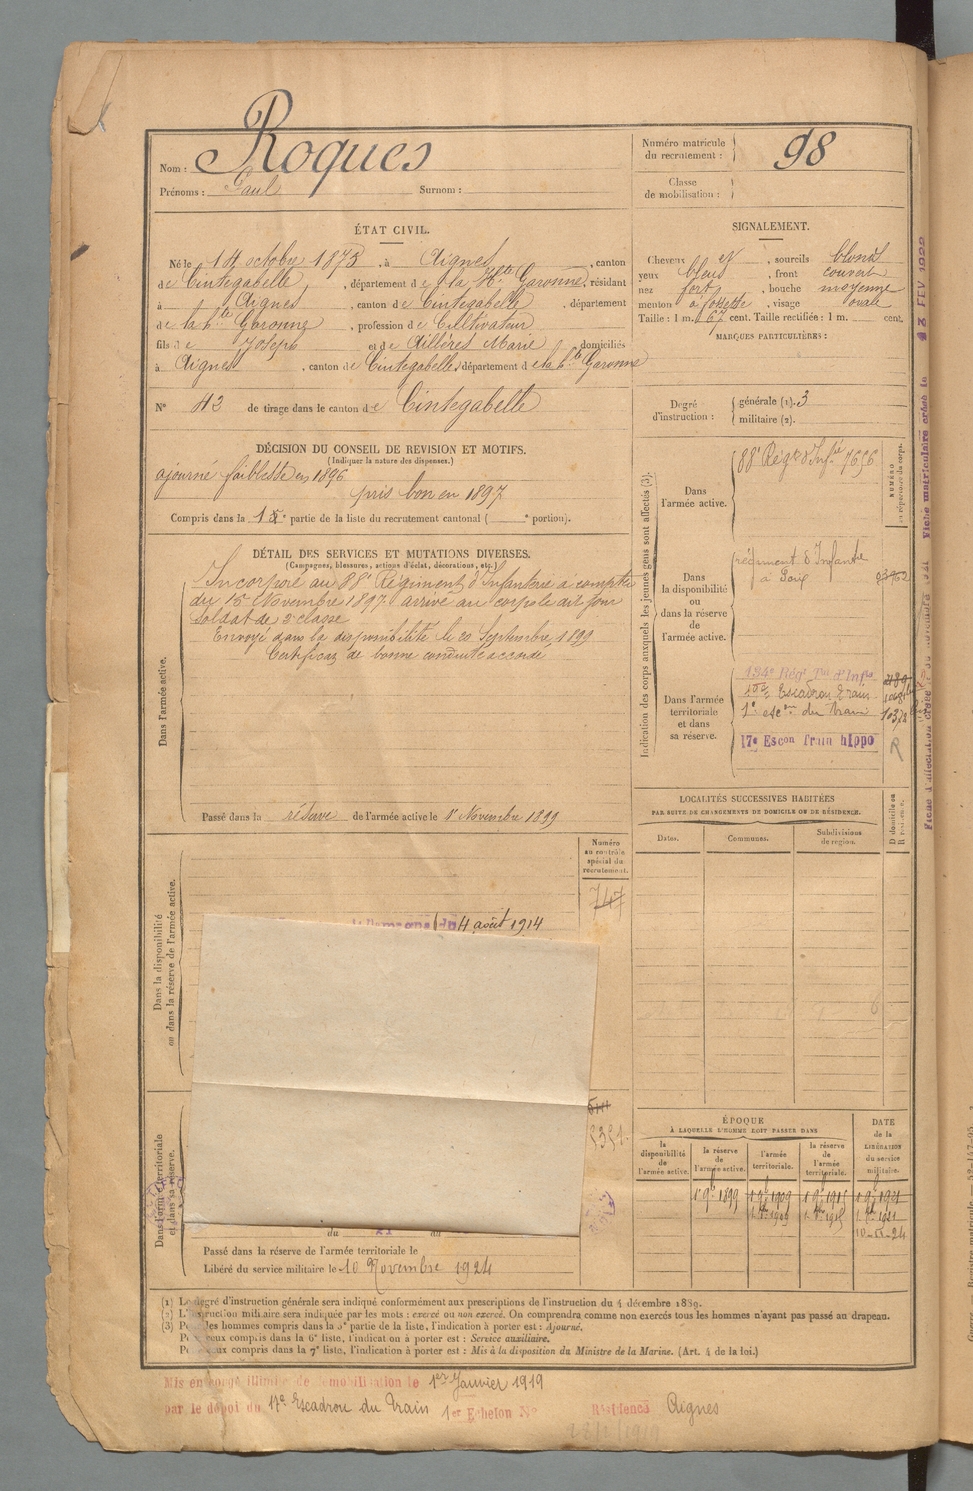 Nom : Roques
Prénoms : Paul Surnom :
Numéro matricule du recrutement : 98
Classe de mobilisation :
ÉTAT CIVIL.
Né le 14 octobre 1875, à Aignes, canton
de Cintegabelle, département de la Hte Garonne, résidant
à Aignes, canton de Cintegabelle, département
de la hte Garonne, profession de Cultivateur
fils de Joseph et de Aillères Marie, domiciliés
à Aignes, canton de Cintegabelle, département de la hte Garonne
N° 42 de tirage dans le canton de Cintegabelle
SIGNALEMENT.
Cheveux et, sourcils blonds
yeux bleus, front couvert
nez fort, bouche moyenne
menton à fossette, visage ovale
Taille : 1 m. 67 cent. Taille rectifiée : 1 m. cent.
MARQUES PARTICULIÈRES :
Degré d'instruction : générale (1). 3
militaire (2).
DÉCISION DU CONSEIL DE REVISION ET MOTIFS.
(Indiquer la nature des dispenses.)
ajourné faiblesse en 1896
pris bon en 1897
Compris dans la partie de la liste du recrutement cantonal ( e portion).
DÉTAIL DES SERVICES ET MUTATIONS DIVERSES.
(Campagnes, blessures, actions d'éclat, décorations, etc.)
Dans l'armée active.
Incorporé au 88e Régiment d'Infanterie à compter
du 15 Novembre 1897 arrivé au corps le dit jour
Soldat de 2e classe
Envoyé dans la disponibilité le 20 Septembre 1899
Certificat de bonne conduite accordé
Passé dans la réserve de l'armée active le 1er Novembre 1899
Indication des corps auxquels les jeunes gens sont affectés (3).
NUMÉRO au répertoire du corps.
Dans l'armée active.
88e Régt d'Infie 7656
Dans la disponibilité ou dans la réserve de l'armée active.
régiment d'Infantie
à
Dans l'armée territoriale et dans sa réserve.
134e Régt Tal d'Infie
Escadron Train
1er escon du train
17e Escon Train hippo R
LOCALITÉS SUCCESSIVES HABITÉES
PAR SUITE DE CHANGEMENTS DE DOMICILE OU DE RÉSIDENCE.
D domicile ou R résidence.
Dates. Communes. Subdivisions de région.
Numéro au contrôle spécial du recrutement.
747
Dans la disponibilité ou dans la réserve de l'armée active.
du 4 août 1914
Dans l'armée territoriale et dans sa réserve.
du 21 au
Passé dans la réserve de l'armée territoriale le
Libéré du service militaire le 10 Novembre 1924
ÉPOQUE
À LAQUELLE L'HOMME DOIT PASSER DANS
DATE de la LIBÉRATION du service militaire.
la disponibilité de l'armée active. la réserve de l'armée active. l'armée territoriale. la réserve de l'armée territoriale.
1er 9bre 1899 1er 9bre 1909 1er 9bre 1915 1er 9bre 1921
10-11-24
(1) Le degré d'instruction générale sera indiqué conformément aux prescriptions de l'instruction du 4 décembre 1889.
(2) L'instruction militaire sera indiquée par les mots : exercé ou non exercé. On comprendra comme non exercés tous les hommes n'ayant pas passé au drapeau.
(3) Pour les hommes compris dans la 5e partie de la liste, l'indication à porter est : Ajourné.
Pour ceux compris dans la 6e liste, l'indication à porter est : Service auxiliaire.
Pour ceux compris dans la 7e liste, l'indication à porter est : Mis à la disposition du Ministre de la Marine. (Art. 4 de la loi.)
Mis en congé illimité de démobilisation le 1er Janvier 1919
par le dépôt du 17e Escadron du Train 1er Echelon N° Résidence Aignes